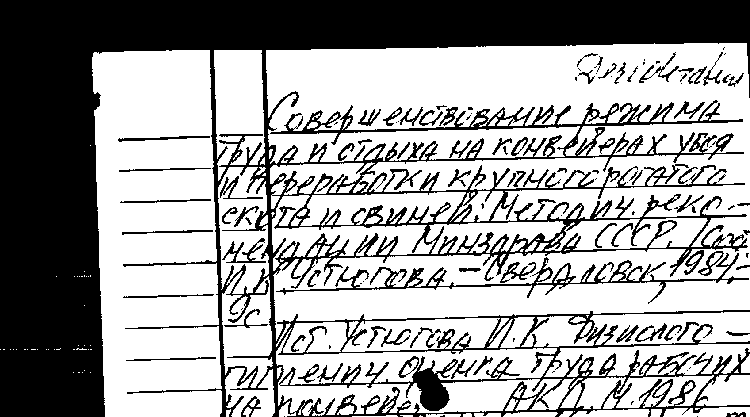 Совершенствование режима
труда и отдыха на конвейерах убоя
и переработки крупного рогатого
скота и свиней. Методич. реко-
мендации Минздрава СССР. /Сост
И.К. Устюгова. – Свердловск, 1984. –
9с.
Ист. Устюгова И.К. Физиолого-
гигиенич. оценка труда рабочих
на конвейе АКД. М. 1986